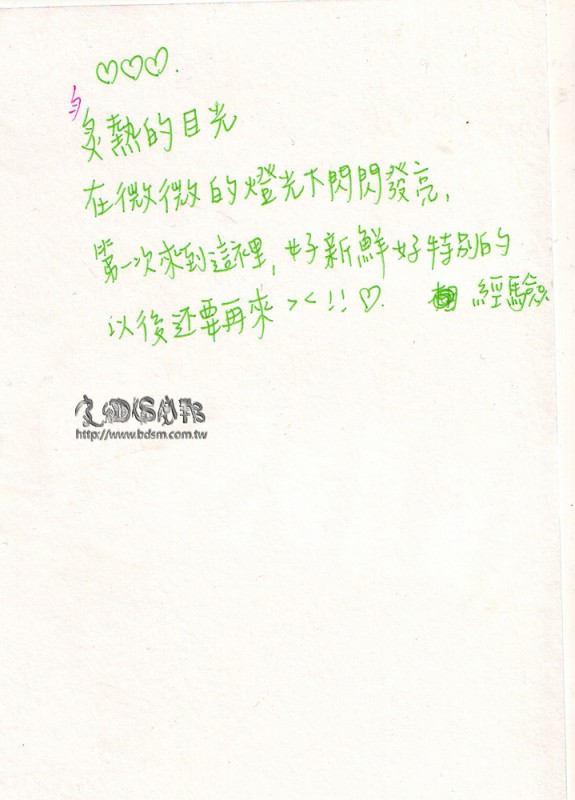 ♡♡♡.
炙熱的目光
在微微的燈光下閃閃發亮,
第一次來到這裡, 好新鮮好特別的
經驗
以後还要再來 ><!! ♡.
http://www.bdsm.com.tw